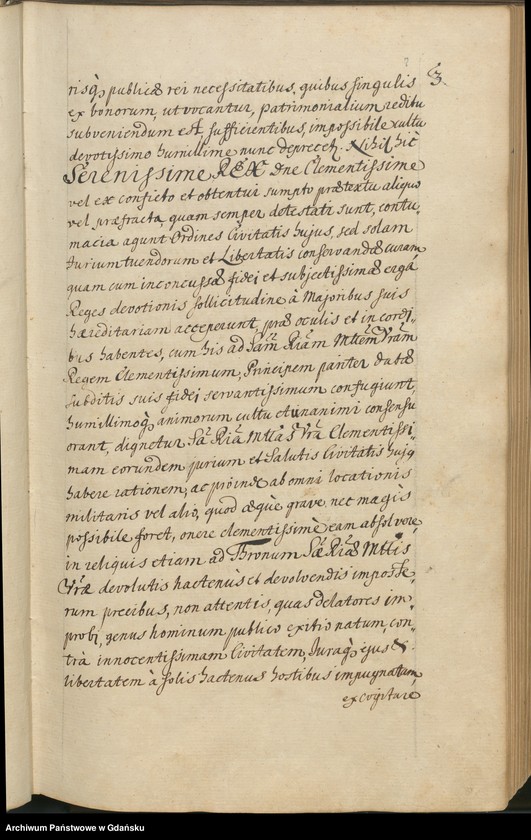 3.
risq; publicæ rei necessitatibus, quibus singulis
ex bonorum, ut vocantur, patrimonialium reditu
subveniendum est, sufficientibus, impossibile cultu
devotissimo humillime nunc deprecet. Nihil hic
Serenissime REX dne Clementissime
vel ex conficto et obtentui sumpto prætextu aliquo
vel præfracta, quam semper detestati sunt, contu-
macia agunt Ordines Civitatis hujus, sed solam
Jurium tuendorum et Libertatis conservandæ curam
quam cum inconcussæ fidei et subjectissimæ ergà
Reges devotionis sollicitudine à Majoribus suis
hæreditariam acceperunt, præ oculis et in cordi-
bus habentes, cum his ad Sam Riam Mttem Vram
Regem Clementissimum, Principem pariter datæ
subditis suis fidei servantissimum confugiunt,
humillimoq; animorum cultu et unanimi consensu
orant, dignetur Sa Ria Mttas Vra Clementissi-
mam eorundem jurium et Salutis Civitatis hujq
habere rationem, ac proinde ab omni locationis
militaris vel alio, quod æque grave nec magis
possibile foret, onere clementissimè eam absolvere,
in reliquis etiam ad Thronum Sæ Riæ Mttis
Vræ devolutis hactenus et devolvendis imposte-
rum precibus, non attentis, quas delatores im-
probi, genus hominum publico exitio natum, con-
trà innocentissimam Civitatem, Juraq; ejus &
libertatem à solis hactenus hostibus impugnatam,
excogitare
Archiwum Państwowe w Gdańsku